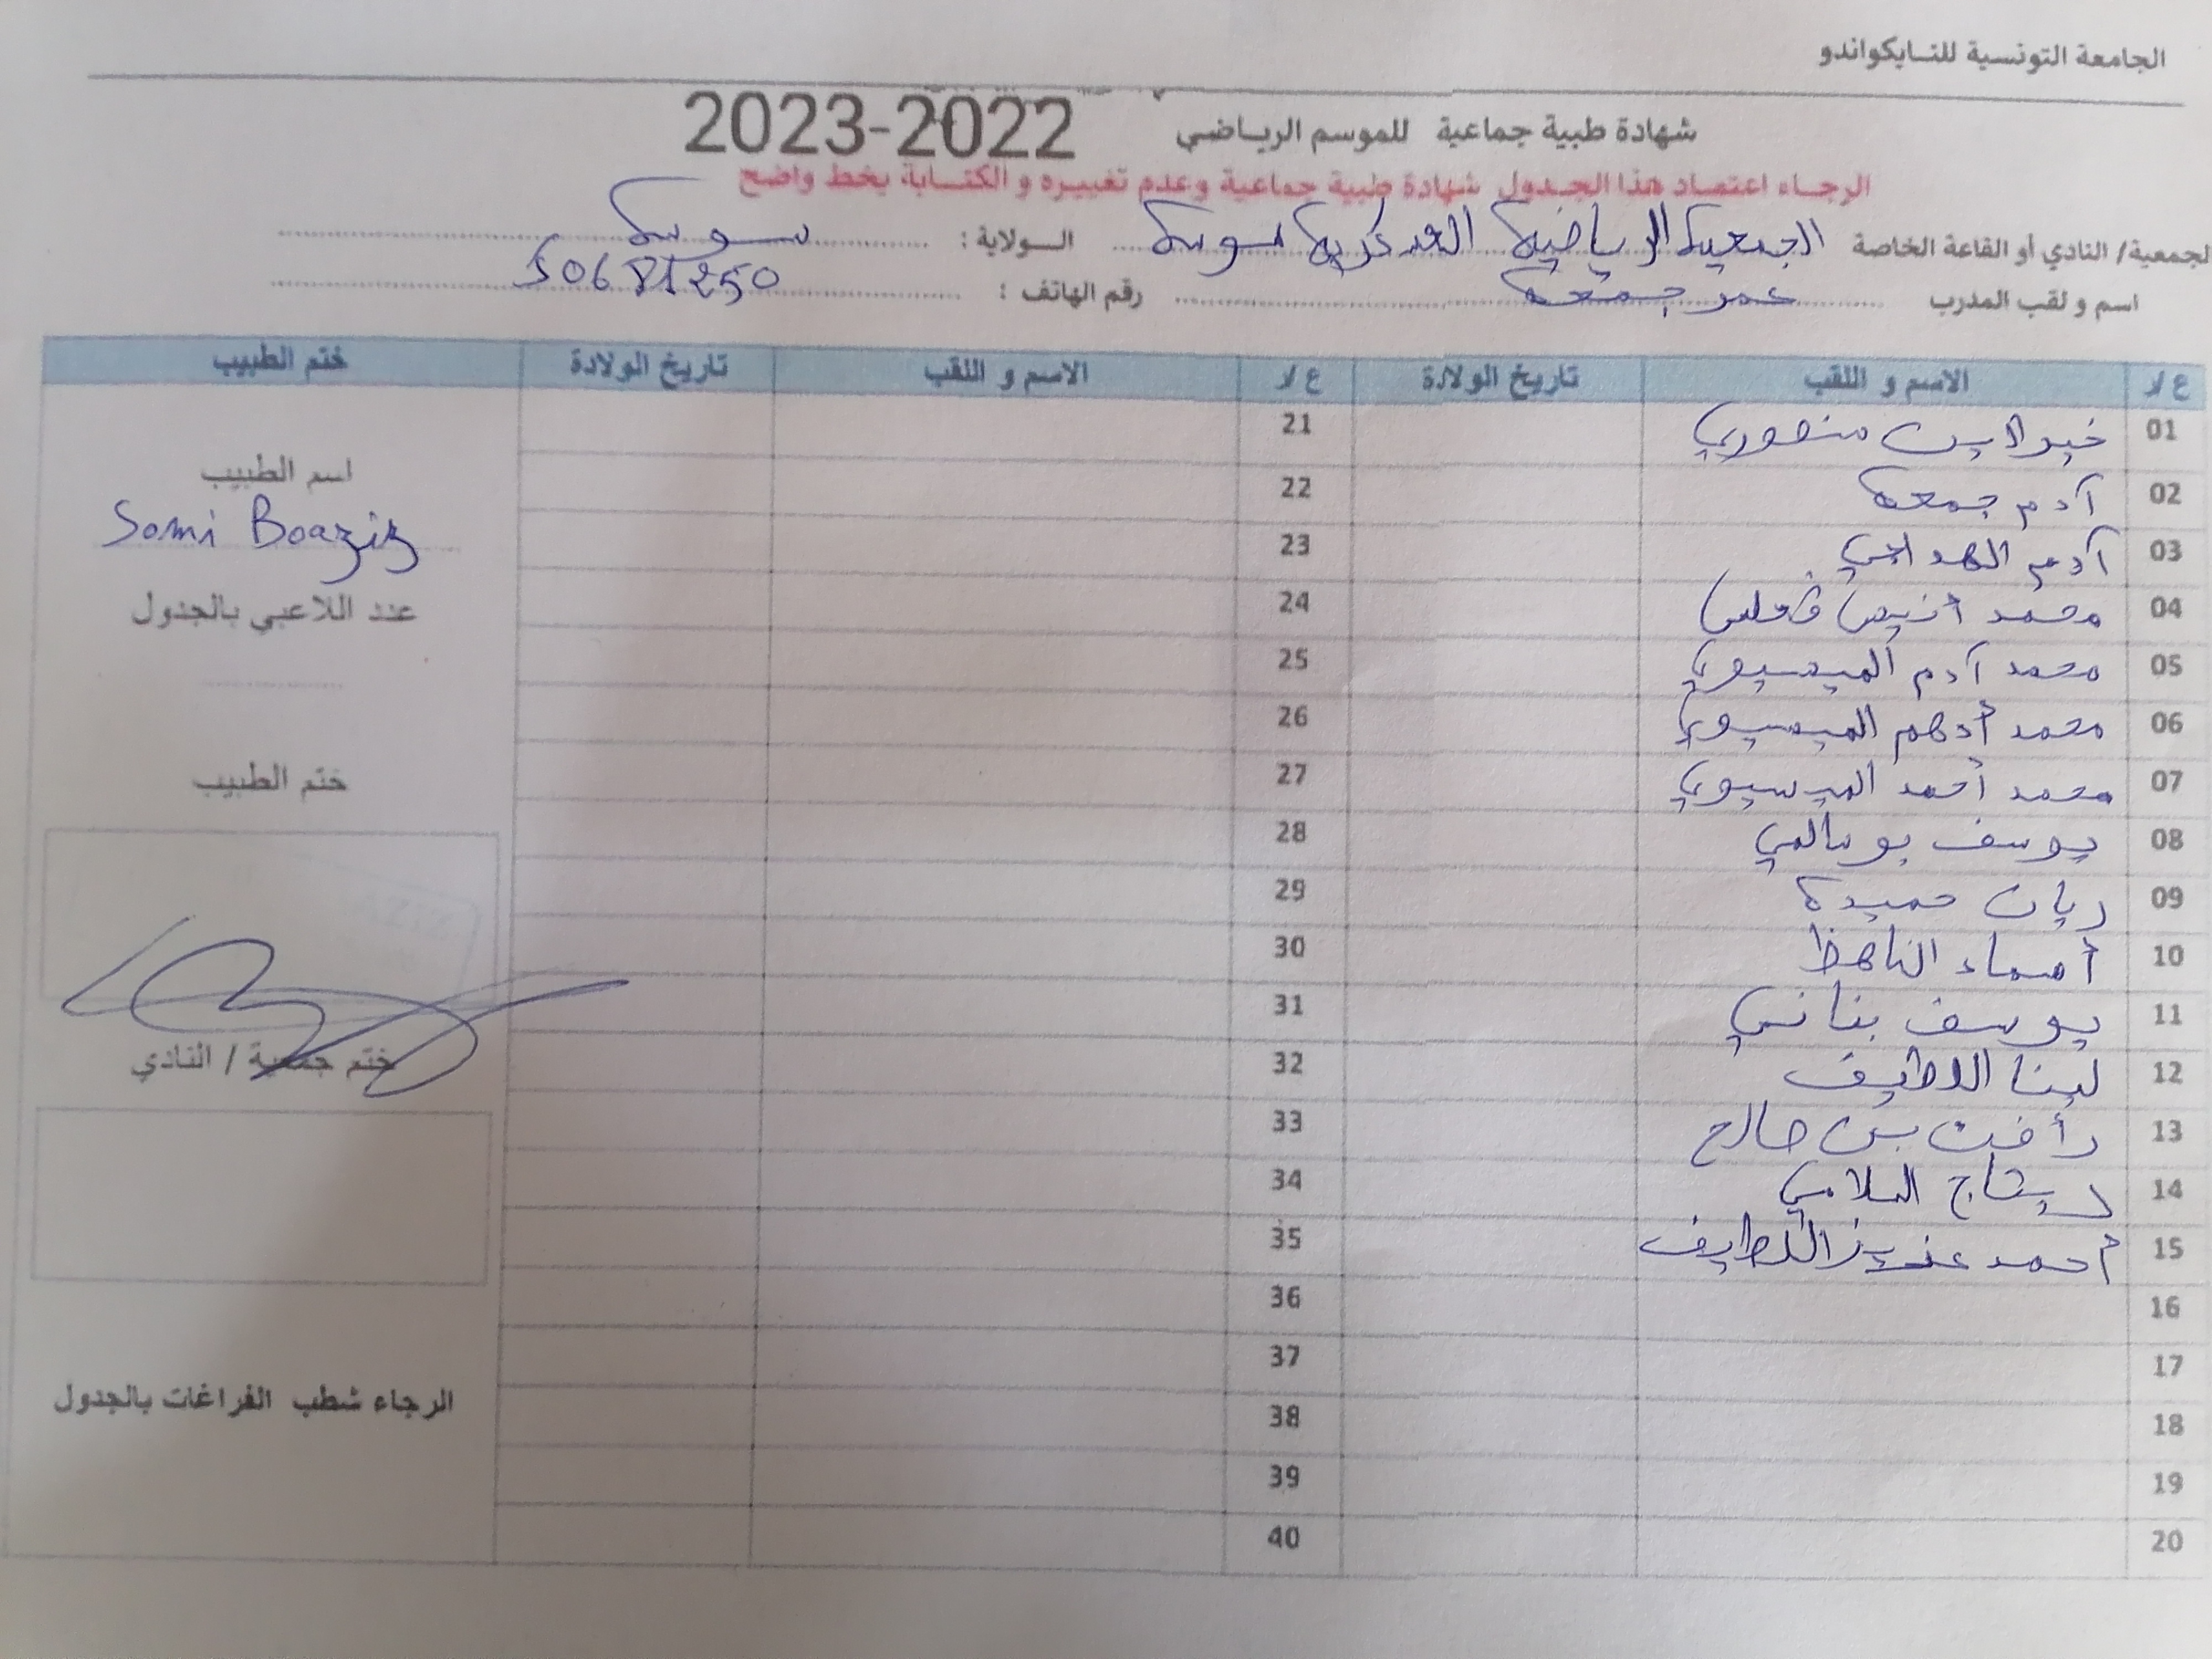 الجامعة التونسية للتايكواندو
شهادة طبية جماعية للموسم الرياضي 2022-2023
الرجاء اعتماد هذا الجدول شهادة طبية جماعية وعدم تغييره و الكتابة بخط واضح
لجمعية/ النادي أو القاعة الخاصة الجمعية الرياضية العسكرية سوسة الولاية : سوسة
اسم و لقب المدرب عمر جمعة رقم الهاتف : 50681250
ع/ر الاسم و اللقب تاريخ الولادة ع/ر الاسم و اللقب تاريخ الولادة ختم الطبيب
01 منصوري 21
02 آدم جمعة 22
03 آدم 23
04 محمد أنيس 24
05 محمد آدم الميسيوي 25
06 محمد أدهم الميسيوي 26
07 محمد أحمد الميسيوي 27
08 يوسف بوسالمي 28
09 ريان حميدة 29
10 أسماء 30
11 يوسف بناني 31
12 لينا اللطيف 32
13 رأفت بن صالح 33
14 ريتاج السلامي 34
15 أحمد عزيز اللطيف 35
16 36
17 37
18 38
19 39
20 40
اسم الطبيب
Sami Boaziz
عدد اللاعبي بالجدول
ختم الطبيب
ختم جمعية / النادي
الرجاء شطب الفراغات بالجدول